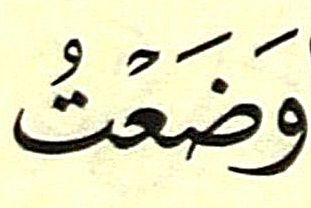 وَضَعْتُ